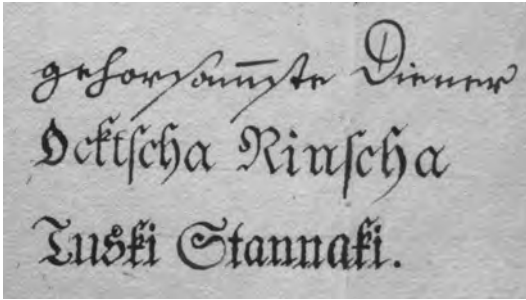 gehorſam̄ſte Diener
Ocktſcha Rinſcha
Tuski Stannaki.